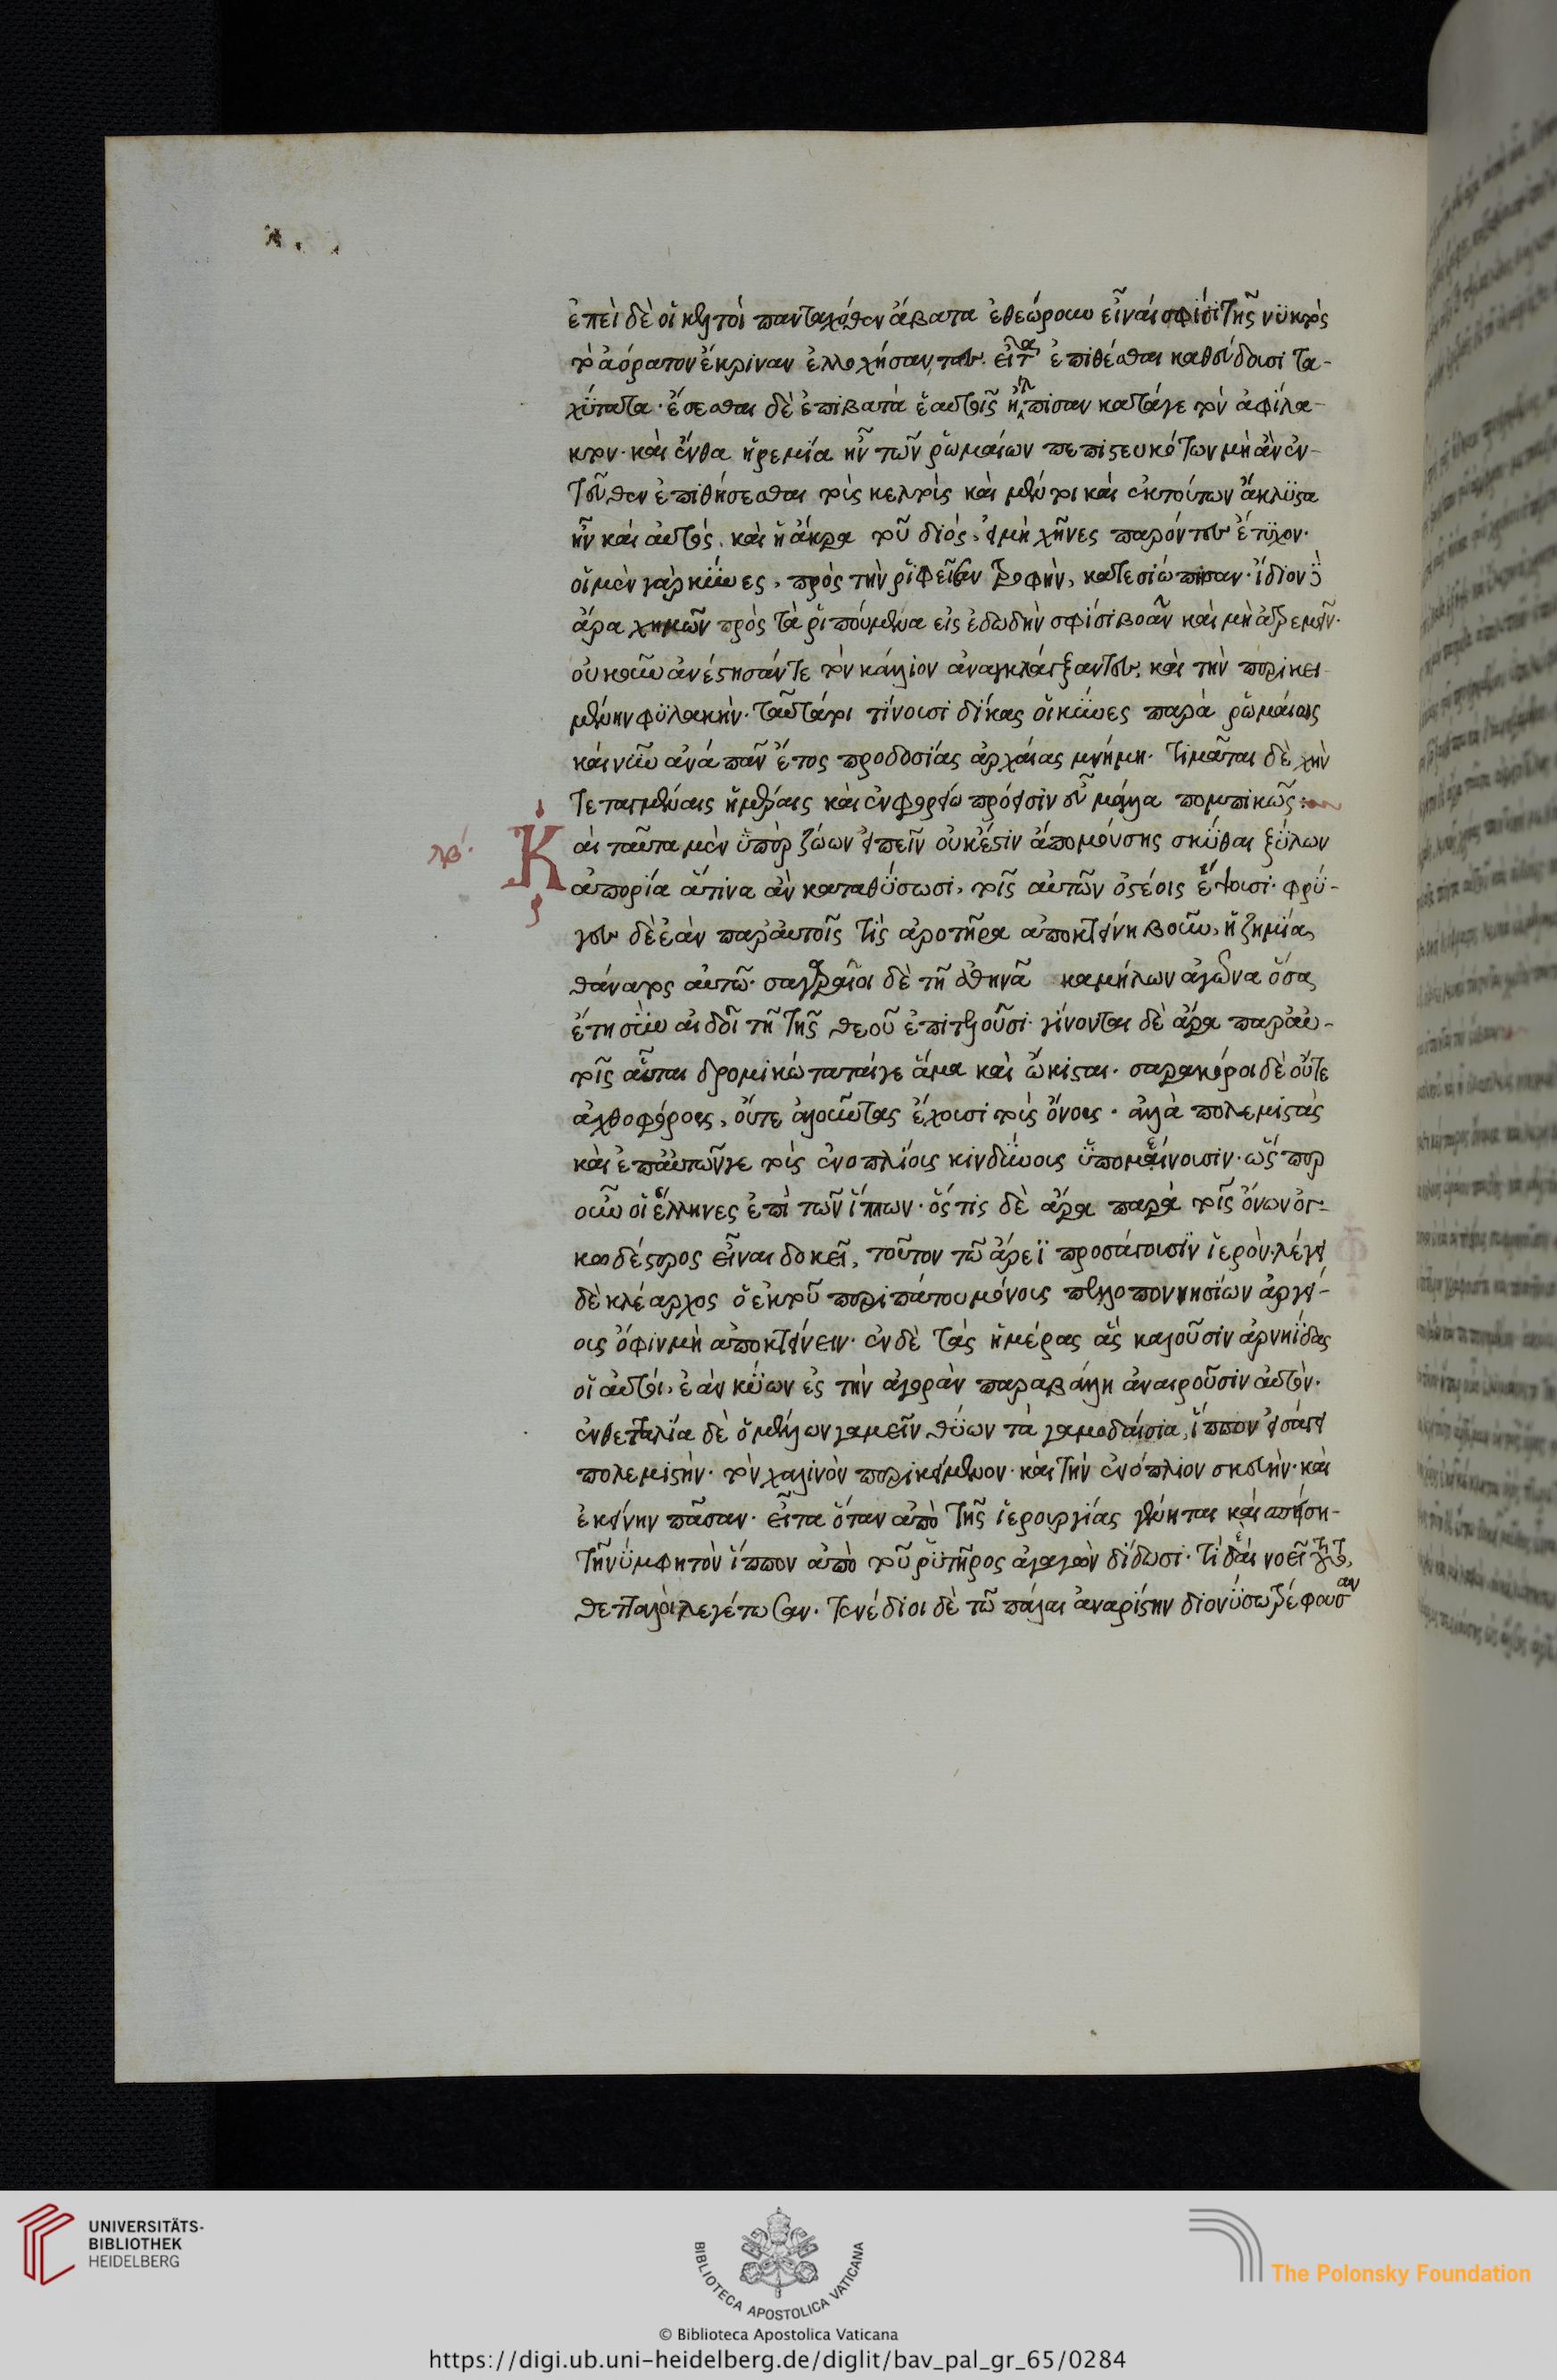 ἐπεὶ δὲ οἱ κελτοὶ πανταχόθεν ἄβατα ἐθεώρουν εἶναί σφισι τῆς νυκτὸς
τὸ ἀόρατον ἔκριναν ἐλλοχήσαντες. εἶτα ἐπιθέσθαι καθεύδουσι τα-
χύτατα· ἔσεσθαι δὲ ἐπιβατὰ ἑαυτοῖς ἤλπισαν κατά γε τὸν ἀφύλα-
κτον· καὶ ἔνθα ἠρεμία ἦν τῶν ῥωμαίων πεπιστευκότων μὴ ἂν ἐν-
τεῦθεν ἐπιθήσεσθαι τοὺς κελτοὺς καὶ μέντοι καὶ ἐκ τούτων ἄκλυστα
ἦν καὶ αὐτὸς. καὶ ἡ ἄκρα τοῦ διός, εἰ μὴ χῆνες παρόντες ἔτυχον·
οἱ μὲν γὰρ κύνες, πρὸς τὴν ῥιφεῖσαν τροφὴν, κατεσιώπησαν· ἴδιον δὲ
ἄρα χηνῶν πρὸς τὰ ῥιπτούμενα εἰς ἐδωδὴν σφίσι βοᾶν καὶ μὴ ἀτρεμεῖν·
οὐκοῦν ἀνέστησάν τε τὸν μάλλιον ἀναγκλάγξαντες, καὶ τὴν περικει-
μένην φυλακήν· ταῦτά τοι τίνουσι δίκας οἱ κύνες παρὰ ῥωμαίοις
καὶ νῦν ἀνὰ πᾶν ἔτος προδοσίας ἀρχαίας μνήμη· τιμᾶται δὲ χὴν
τεταγμέναις ἡμέραις καὶ ἐν φορείῳ πρόεισιν εὖ μάλα πομπικῶς:
λβ΄·
Καὶ ταῦτα μὲν ὑπὲρ ζώων εἰπεῖν οὐκ ἔστιν ἀπο μούσης σκύθαι ξύλων
ἀπορία ἅτινα ἂν καταθύσωσι, τοῖς αὐτῶν ὀστέοις ἕψουσι· φρύ-
γες δὲ ἐὰν παρ' αὐτοῖς τὶς ἀροτῆρα ἀποκτείνη βοῦν, ἡ ζημία,
θάνατος αὐτῶ· σαγαραῖοι δὲ τῆ ἀθηνᾶ καμήλων ἀγῶνα ὅσα
ἔτη σὺν αἰδοῖ τῆ τῆς θεοῦ ἐπιτελοῦσι· γίνονται δὲ ἄρα παρ' αὐ-
τοῖς αὗται δρομικώταταί γε ἅμα καὶ ὤκισται· σαρακόροι δὲ οὔτε
ἀχθοφόρους, οὔτε ἀλοῦντας ἔχουσι τοὺς ὄνους· ἀλλὰ πολεμιστὰς
καὶ ἐπ' αὐτῶν γε τοὺς ἐνοπλίους κινδύνους ὑπομένουσιν· ὥς περ
οὖν οἱ ἕλληνες ἐπὶ τῶν ἵππων· ὅς τις δὲ ἄρα παρὰ τοῖς ὄνων ὀγ-
κωδέστερος εἶναι δοκεῖ, τοῦτον τῶ ἄρεϊ προσάγουσιν ἱερόν· λέγει
δὲ κλέαρχος ὁ ἐκ τοῦ περιπάτου μόνους πελοποννησίων ἀργεί-
ους ὄφιν μὴ ἀποκτείνειν· ἐν δὲ τὰς ἡμέρας ἃς καλοῦσιν ἀρνηίδας
οἱ αὐτοί, ἐὰν κύων ἐς τὴν ἀγορὰν παραβάλη ἀναιροῦσιν αὐτόν·
ἐν θετταλία δὲ ὁ μέλλων γαμεῖν θύων τὰ γαμοδαίσια, ἵππον εἰσάγει
πολεμιστὴν· τὸν χαλινὸν περικείμενον· καὶ τὴν ἐνόπλιον σκευήν· καὶ
ἐκείνην πᾶσαν· εἶτα ὅταν ἀπὸ τῆς ἱερουργίας γένηται καὶ σπείση-
τῆ νύμφη τὸν ἵππον ἀπὸ τοῦ ῥυτῆρος ἀγαγὼν δίδωσι· τὶ δὲ νοεῖ τοῦτο,
θετταλοὶ λεγέτωσαν· τενέδιοι δὲ τῶ πάλαι ἀναρίστην διονύσω τρέφουσαν
UNIVERSITÄTS-
BIBLIOTHEK
HEIDELBERG
BIBLIOTECA APOSTOLICA VATICANA
The Polonsky Foundation
© Biblioteca Apostolica Vaticana
https://digi.ub.uni-heidelberg.de/diglit/bav_pal_gr_65/0284